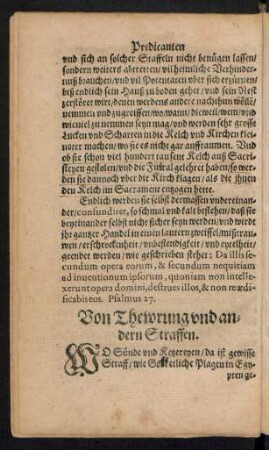 Predicanten
vnd sich an solcher Staffeln nicht benügen lassen/
sondern weiters abtretten/ vil heimliche Verhinder-
nuß brauchen/ vnd vil Potentaten vber sich erzürnen/
biß endlich sein Hauß zu boden gehet / vnd sein Nest
zerstöret wirt/ denen werdens andere nachthun wöllen/
nemmen vnd zugreiffen/ wo/ wann/ dieweil/ wem/ vnd
wieviel zu nemmen seyn mag/ vnd werden sehr grosse
Lucken vnd Scharten in die Kelch vnd Kirchen klei-
noter machen/ wo sie es nicht gar auffraumen. Vnd
ob sie schon viel hundert tausent Kelch auß Sacri-
steyen gestolen/ vnd die
gelehret haben/ so wer-
den sie dannoch vber die Kirch klagen/ als die jhnen
den Kelch im Sacrament entzogen hette.
Endlich werden sie selbst dermassen vndereinan-
der/ confundiret/ so schmal vnd kalt bestehen/ daß sie
beyeinander selbst nicht sicher seyn werden/ vnd wirdt
jhr gantzer Handel in einen lautern zweiffel/ mißtraw-
en/ erschrockenheit / vnbestendigkeit / vnd eytelheit/
geendet werden / wie geschrieben stehet : Da illis se-
cundum opera eorum, & secundum nequitiam
ad inuentionum ipsorum, quoniam non intelle-
xerunt opera domini, destrues illos, & non rædi-
ficabis eos. Psalmus 27.
Von Thewrung vnd an-
dern Straffen.
WO Sünde vnd Ketzereyen/ da ist gewisse
Straff/ wie Gottliche Plagen in Egy-
pten ge-